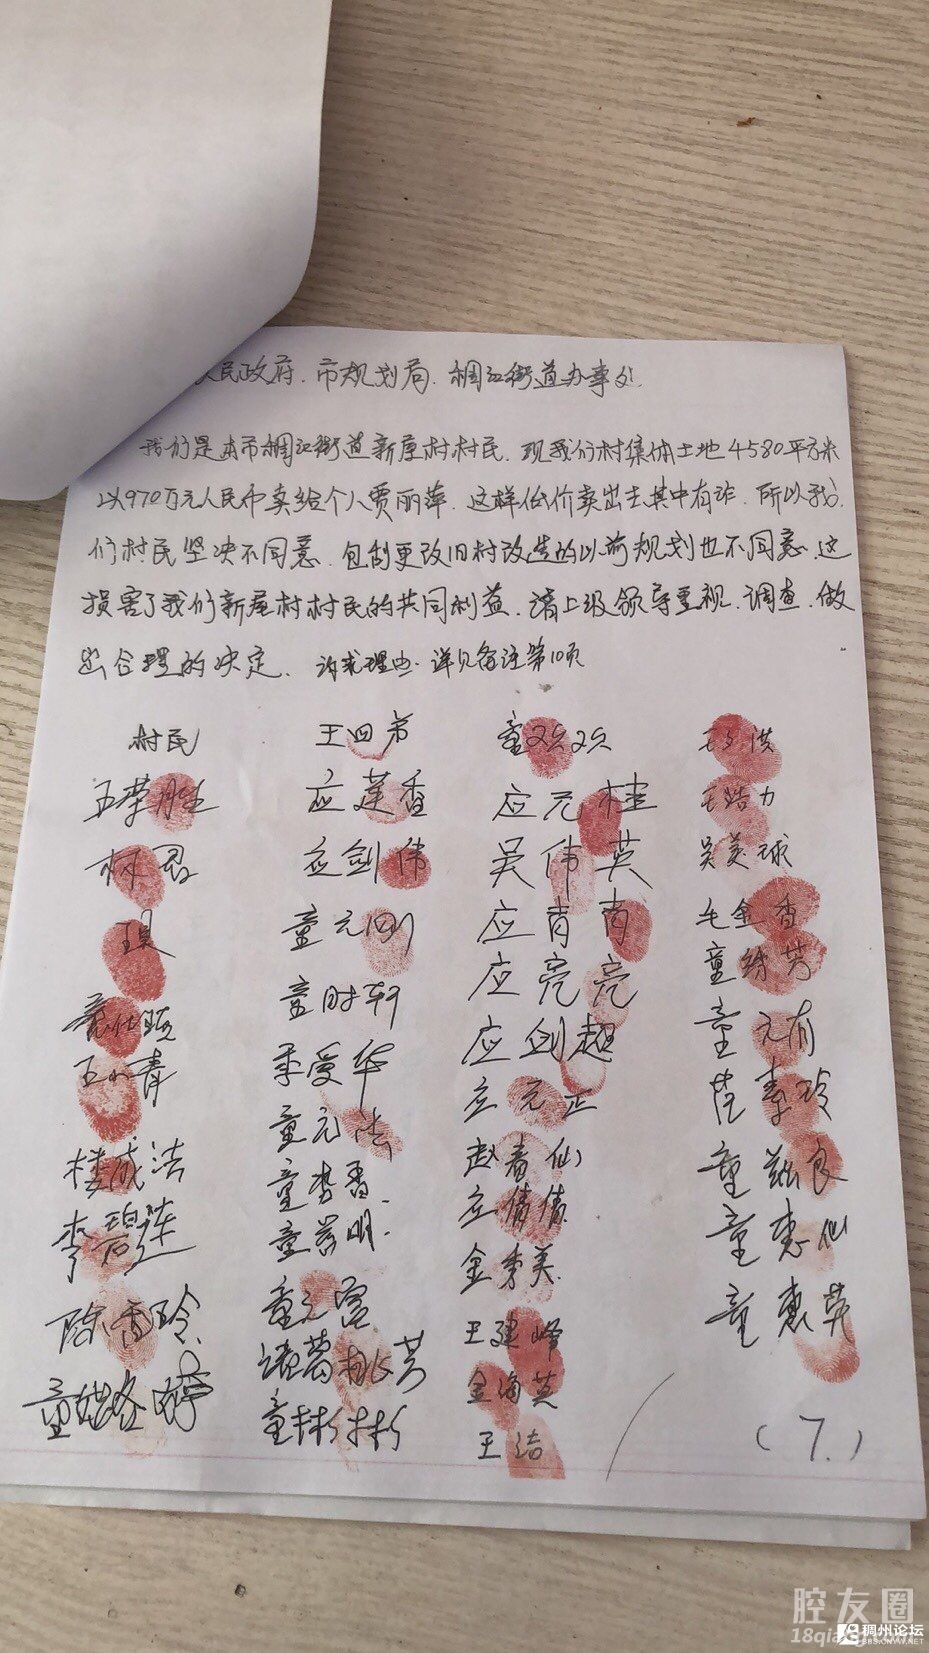 人民政府.市规划局.稠江街道办事处.
我们是本市稠江街道新屋村村民.现我们村集体土地4580平方米
以970万元人民币卖给个人贾丽萍.这样低价卖出去其中有诈.所以我
们村民坚决不同意.包刮更改旧村改造的以前规划也不同意.这
损害了我们新屋村村民的共同利益.请上级领导重视.调查.做
出合理的决定. 诉求理由.详见备注第10页
村民 王四弟 童双双
应莲香 应元桂 毛浩力
林君 应剑伟 吴伟英 吴美球
童元刚 应肖肖 毛金香
童时轩 应亮亮
季爱华 应剑超 童元有
童元法 应元正
楼成洁 童杏香. 赵春仙
李碧莲 应倩倩 童惠仙
金秀美
陈雪玲 童元富 王建峰 童惠英
诸葛桃芳 金海英
童彬彬 王洁 (7.)
腔友圈
稠州论坛
BBS.CNYW.NET